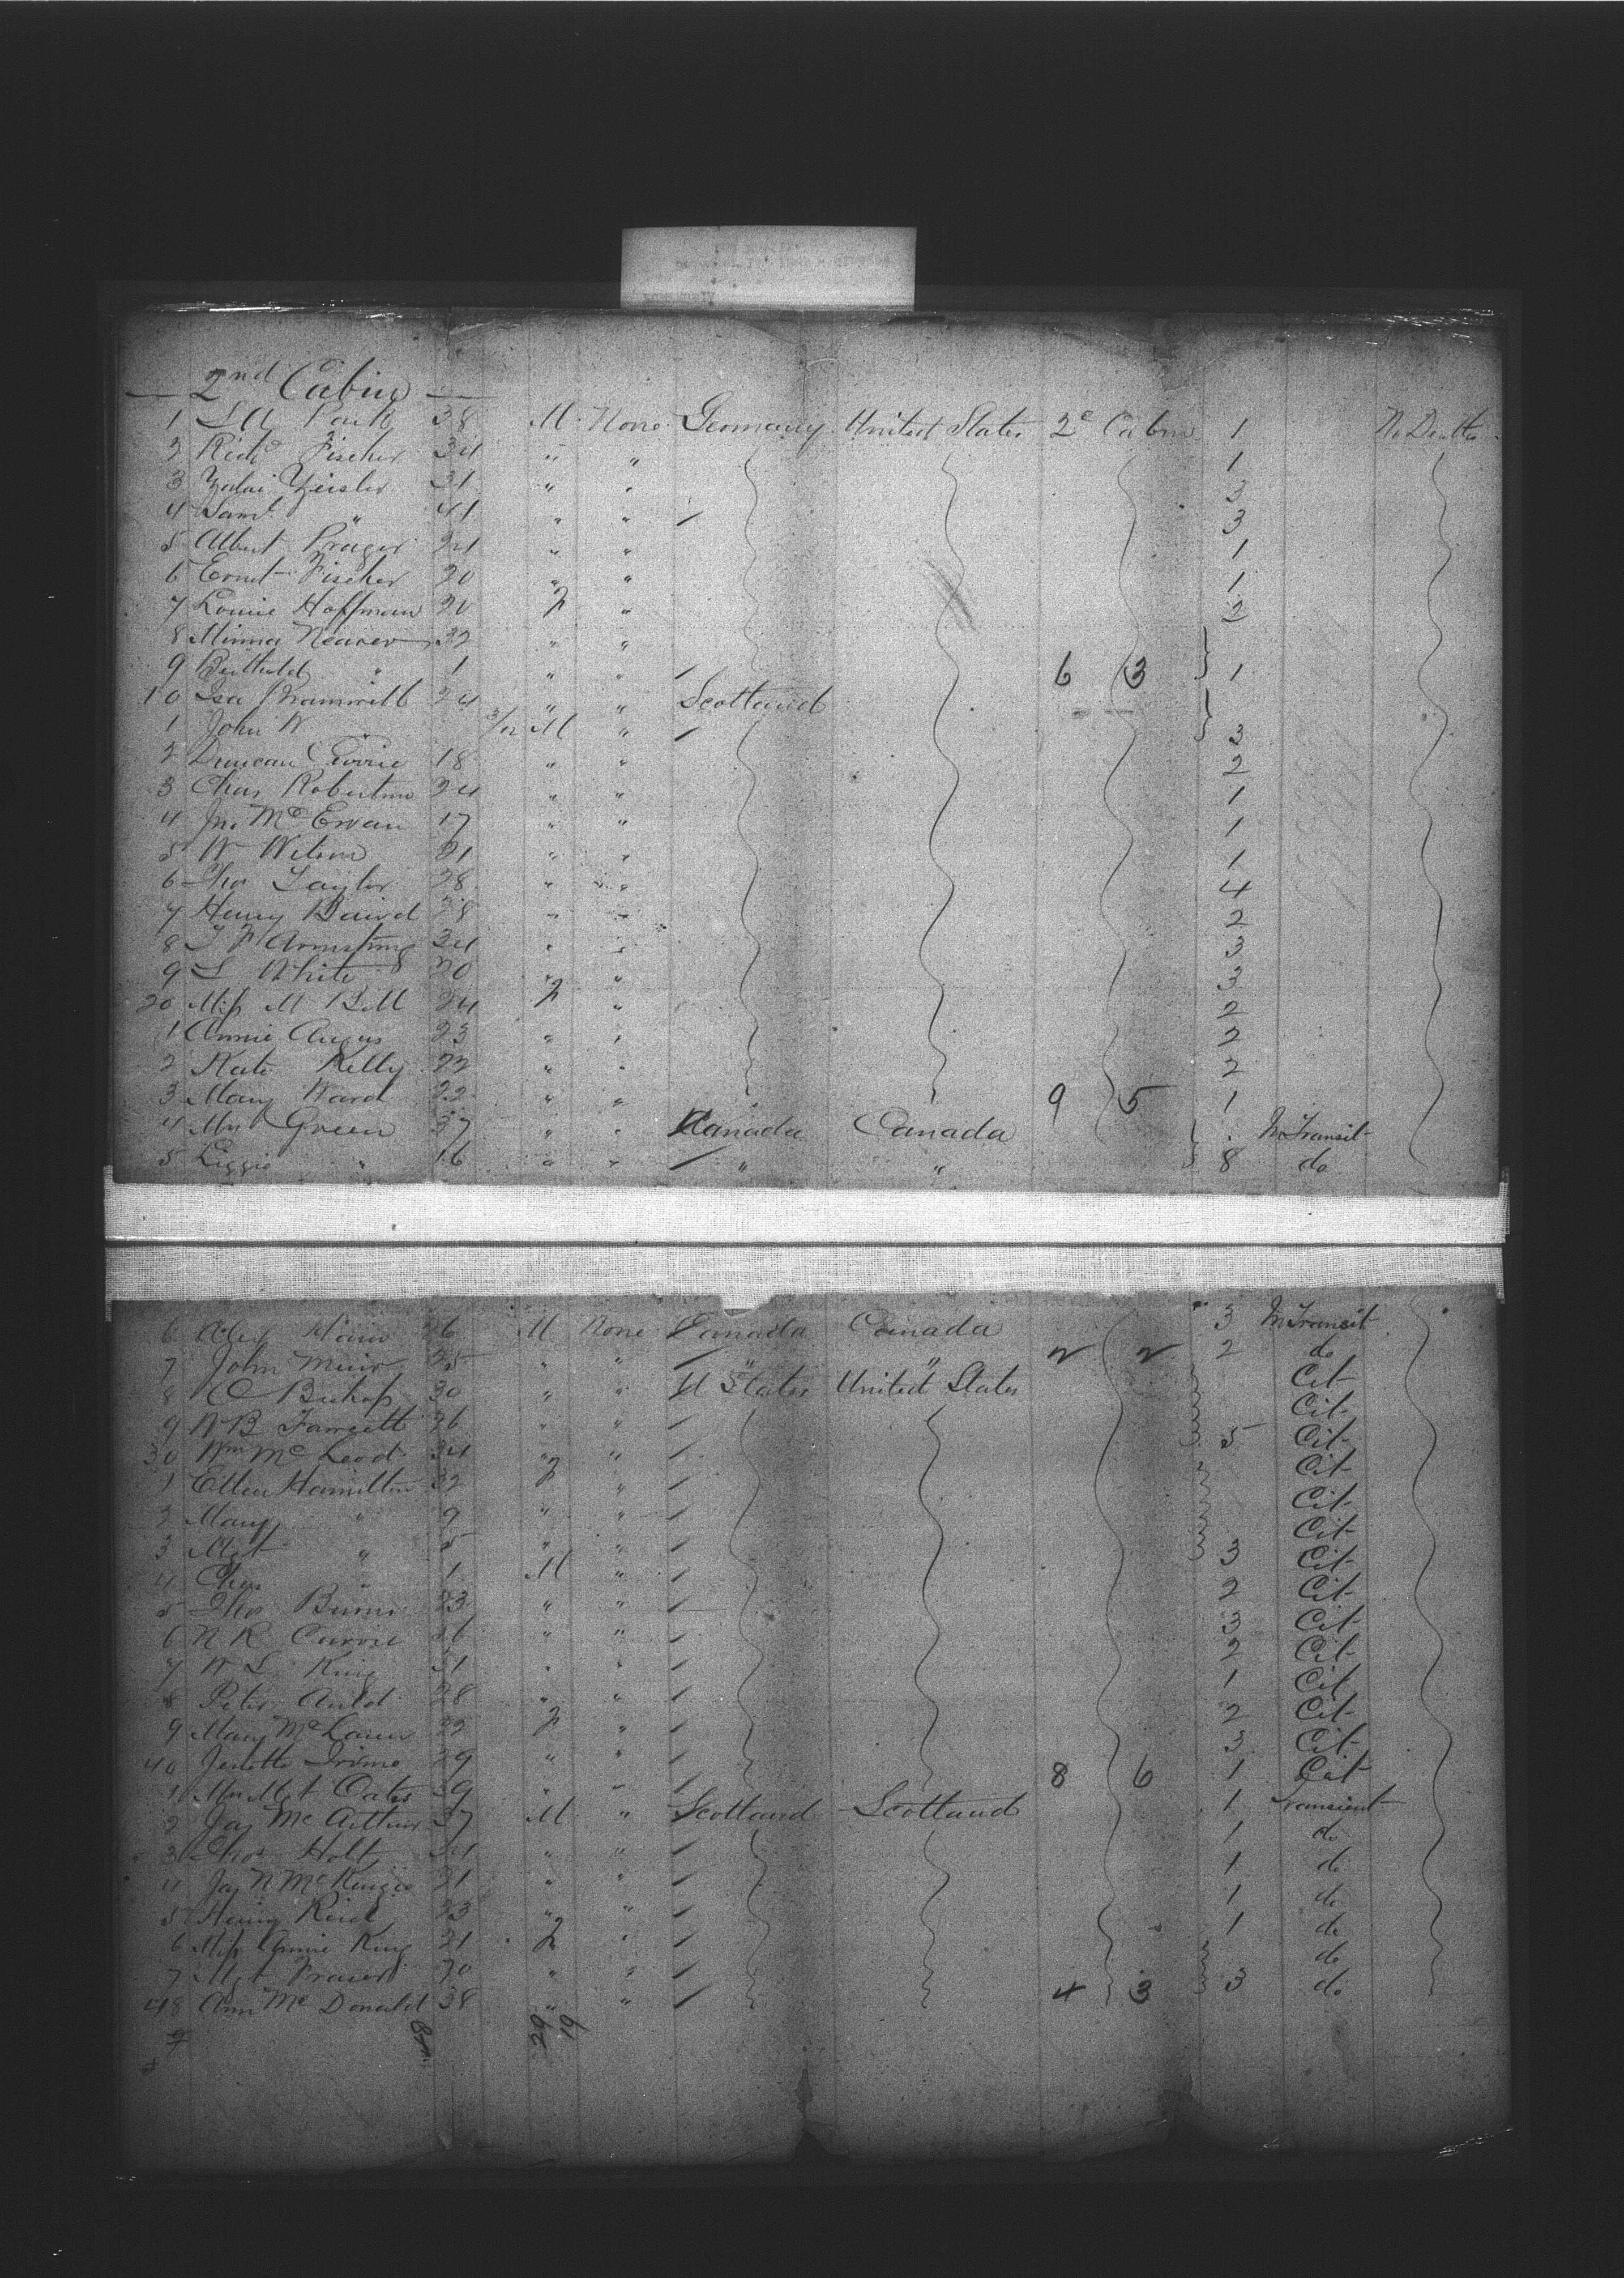 2nd Cabin
1 38 M None Germany United States 2e Cabin 1 No Deaths
2 Richd Fischer 34 " " 1
3 Zeisler 31 " " 3
4 Saml " 41 " " 3
5 Albert Prager 24 " " 1
6 Ernst Fischer 20 " " 1
7 Louise Hoffman 20 F " 2
8 Minna 32 " "
9 Berthold " 1 " " 6 3 1
10 Isa Bramwill 24 " " Scotland
1 John W " 3/12 M " 3
2 Duncan 18 " " 2
3 Chas Robertson 24 " " 1
4 Jno McEwan 17 " " 1
5 W Wilson 21 " " 1
6 Thos Taylor 28 " " 4
7 Henry Baird 28 " " 2
8 Armstrong 34 " " 3
9 L White 20 " " 3
20 Miss M Bell 24 F " 2
1 Annie Angus 23 " " 2
2 Kate Kelly 22 " " 2
3 Mary Ward 22 " " 9 5 1
4 Mrs Green 37 " " Canada Canada In Transit
5 Lizzie " 16 " " " " 8 do
6 Alex 26 M None Canada Canada 3 In Transit
7 John Muir 25 " " " " 2 2 2 do
8 Bishop 30 " " U States United States Cit
9 W B Fawcett 26 " " Cit
30 Wm McLeod 34 " " 5 Cit
1 Ellen Hamilton 32 F " Cit
2 Mary " 9 " " Cit
3 Mgt " 5 " " Cit
4 Chas " 1 M " 3 Cit
5 Thos Burns 23 " " 2 Cit
6 N R Currie " " 3 Cit
7 W L King " " 2 Cit
8 Peter Auld 28 " " 1 Cit
9 Mary McLaren 22 F " 2 Cit
40 29 " " 3 Cit
1 Mrs Mgt Oates 39 " " 8 6 1 Cit
2 Jas McArthur 37 M " Scotland Scotland 1 Transient
3 Thos Holt " " 1 do
4 Jas N McKenzie 21 " " 1 do
5 Henry Reid 23 " " 1 do
6 Miss Annie King 21 F " 1 do
7 Mgt Fraser " " do
48 Ann McDonald 38 " " 4 3 3 do
29 19